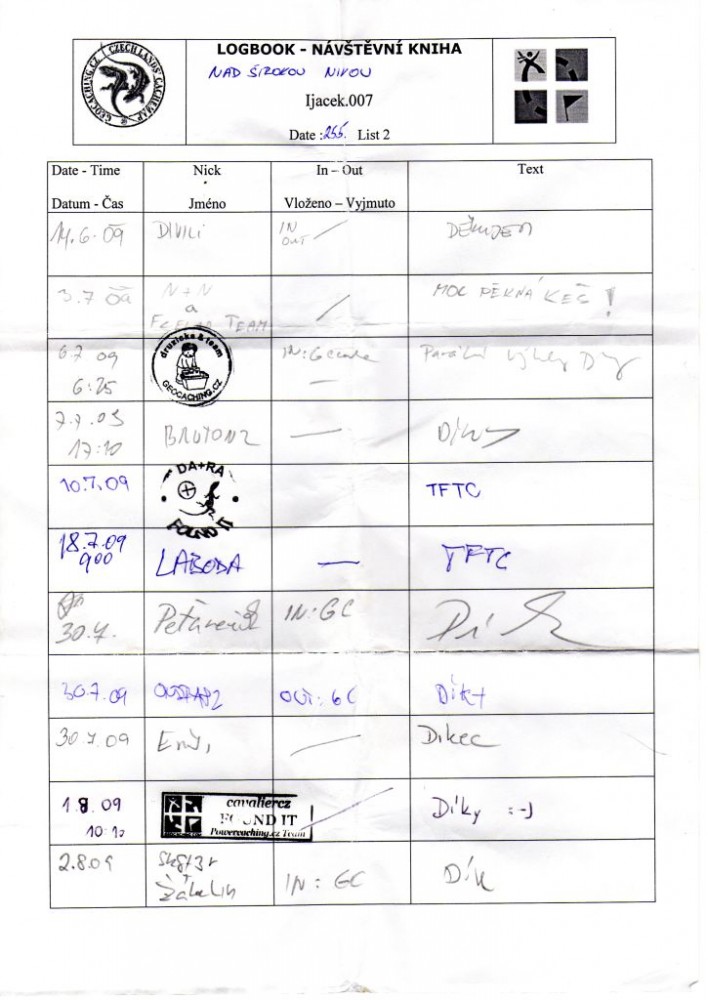 GEOCACHING.CZ CZECH LANDS' CACHEMAP
LOGBOOK - NÁVŠTĚVNÍ KNIHA
NAD ŠIROKOU NIVOU
Ijacek.007
Date :255. List 2
Date - Time Nick In – Out Text
Datum - Čas Jméno Vloženo – Vyjmuto
14.6.09 DIVILI IN
OUT DĚKUJEM
3.7 09 N+N
a
TEAM MOC PĚKNÁ KEŠ!
6.7 09
6:25 druzinka & team
GEOCACHING.CZ IN: GC
7.7.09
17:10 BRUTONZ — Díky
10.7.09 DA+RA
FOUND IT TFTC
18.7.09
900 LABODA — TFTC
30.7. IN: GC
30.7.09 OUT: GC
30.7.09 Dikec
1.8.09
10:12 cavaliercz
FOUND IT
Powercaching.cz Team Díky :-)
2.8.09 IN: GC Dík